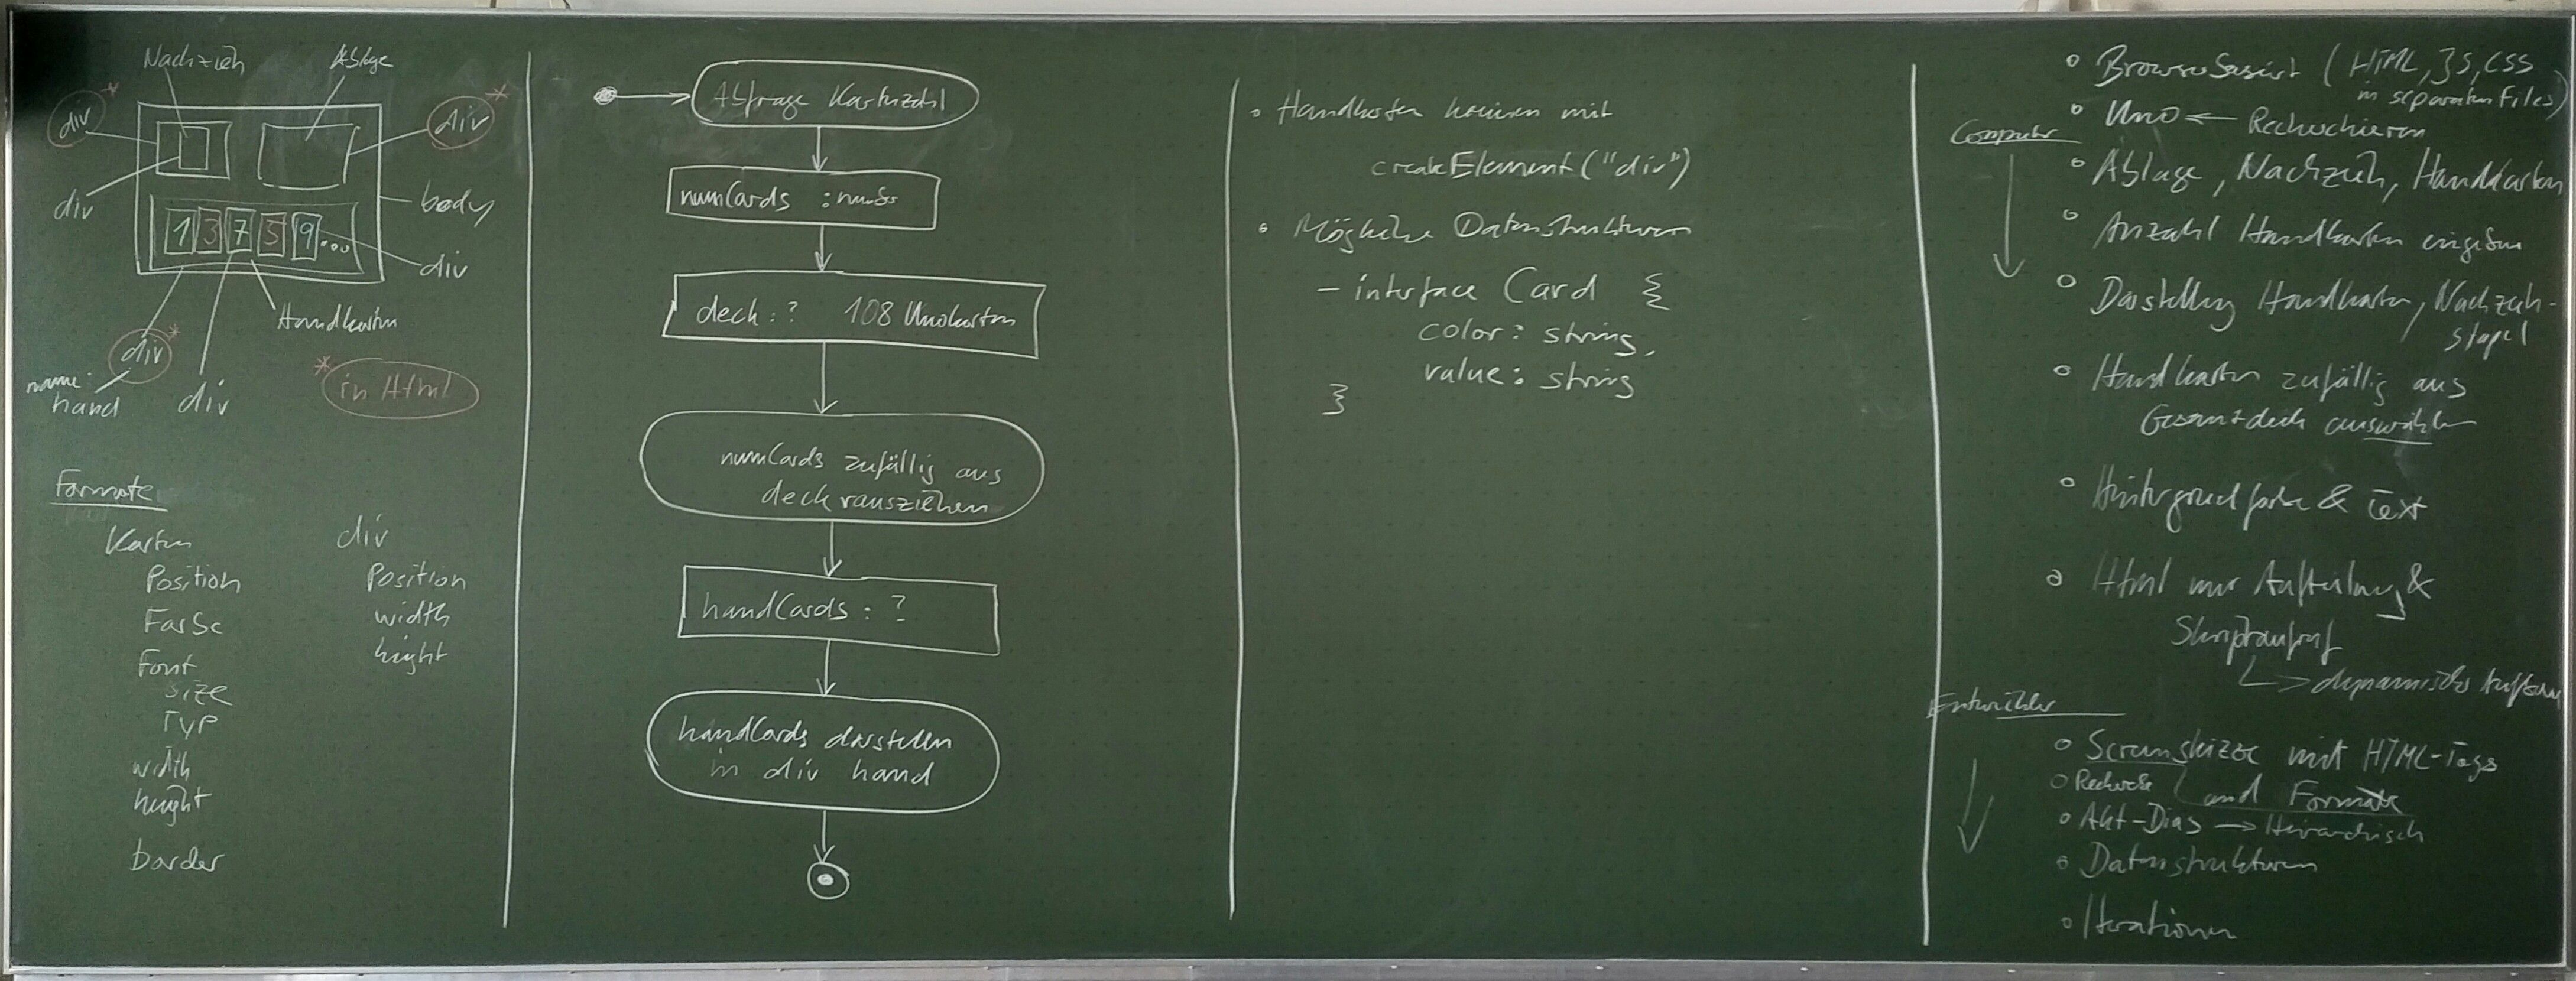 Nachzieh
Ablage
div *
div *
div
body
1 3 7 5 9 ...
div
Handkarten
div *
name:
hand
div
* in Html
Formate
Karten
Position
Farbe
Font
size
Typ
width
height
border
div
Position
width
height
Abfrage Kartenzahl
numCards :
deck : ? 108 Unokarten
numCards zufällig aus
deck rausziehen
handCards : ?
handCards darstellen
in div hand
• Handkarten mit
createElement("div")
• Mögliche Datenstrukturen
- interface Card {
color: string,
value: string
}
Computer
o Browserbasiert (HTML, JS, CSS
in separaten Files)
o Uno ← Recherchieren
o Ablage, Nachzieh, Handkarten
o Anzahl Handkarten eingeben
o Darstellung Handkarten, Nachzieh-
stapel
o Handkarten zufällig aus
Gesamtdeck auswählen
o Hintergrundfarbe & Text
o Html nur Aufteilung &
Skriptaufruf
↳ dynamischer
Entwickler
o Screenskizze mit HTML-Tags
und Formate
o Recherche
o Akt-Diag → Hierarchisch
o Datenstrukturen
o Iterationen